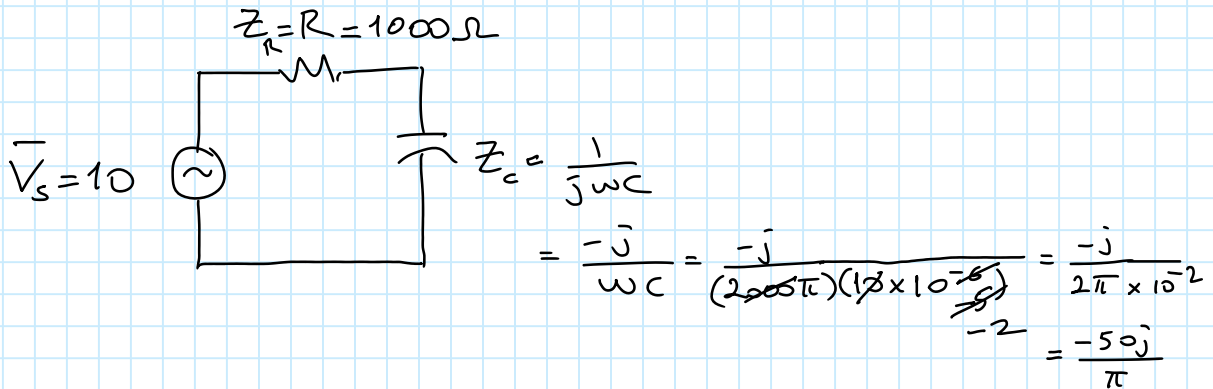 Z_R = R = 1000Ω
V̅_s = 10
Z_c = 1/(jωC)
= -j/(ωC) = -j/((2000π)(10×10^-6)) = -j/(2π × 10^-2)
-5
-2
= -50j/π